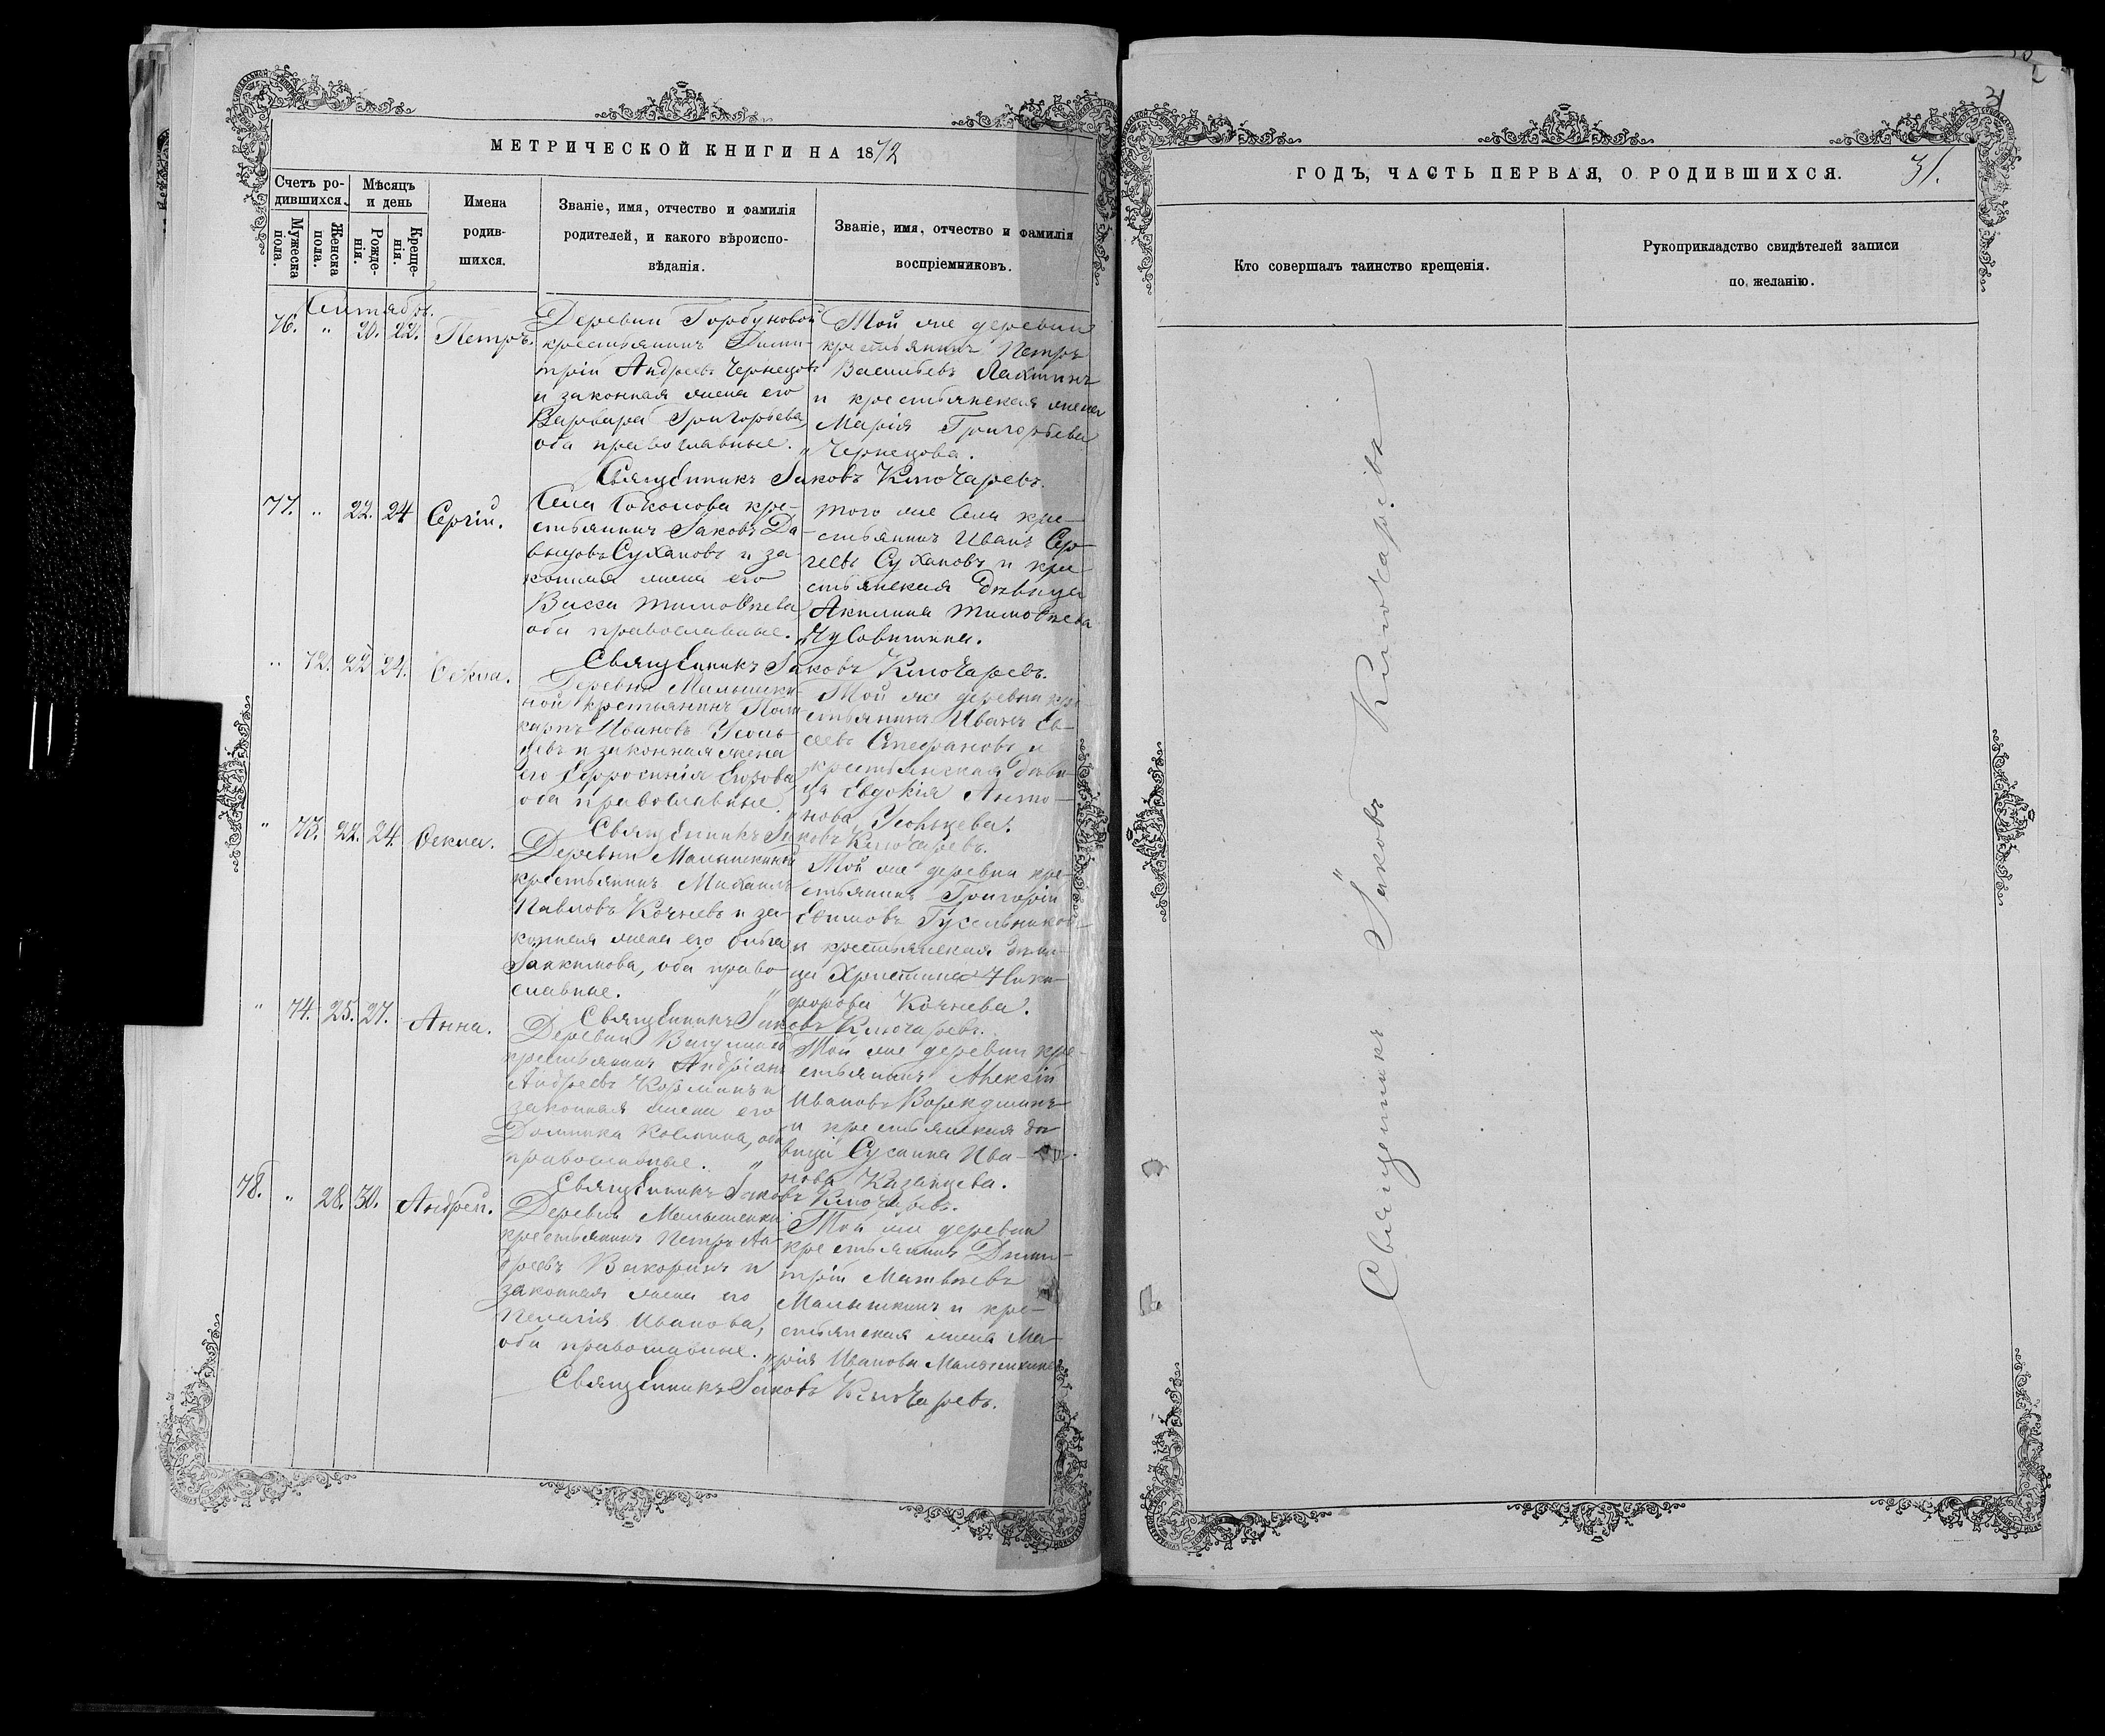 МЕТРИЧЕСКОЙ КНИГИ НА 1872
Счетъ ро-
дившихся.
Мужеска
пола.
Женска
пола.
Мѣсяцъ
и день
Рожде-
нія.
Креще-
нія.
Имена
родив-
шихся.
Званіе, имя, отчество и фамилія
родителей, и какого вѣроиспо-
вѣданія.
Званіе, имя, отчество и фамилія
воспріемниковъ.
Сентябрь.
76. " 20. 22. Петръ.
Деревни Горбуновой
крестьянинъ Дими-
трій Андреевъ Чернецовъ
и законная жена его
Варвара Григорьева,
оба православные. "
Той же деревни
крестьянинъ Петръ
Васильевъ Лахтинъ
и крестьянская жена
Марія Григорьева
Чернецова.
Священникъ Іаковъ Ключаревъ.
77. " 22. 24 Сергій.
Села Соколова кре-
стьянинъ Іаковъ Да-
выдовъ Сухановъ и за-
конная жена его
Васса Тимоѳеева
оба православные. "
того же Села кре-
стьянинъ Иванъ Сер-
геевъ Сухановъ и кре
стьянская дѣвица
Акилина Тимоѳеева
Чусовитина.
Священникъ Іаковъ Ключаревъ.
" 72. 22 24. Ѳекла.
Деревни Малышки-
ной крестьянинъ Поли
карпъ Ивановъ Усоль-
цевъ и законная жена
его Евфросинія Егорова
оба православные. "
Той же деревни кре
стьянинъ Иванъ Ев-
сеевъ Стефановъ и
крестьянская дѣви-
ца Евдокія Анто-
нова Усольцева.
Священникъ Іаковъ Ключаревъ.
" 73. 22. 24. Ѳекла.
Деревни Малышкиной
крестьянинъ Михаилъ
Павловъ Кочневъ и за-
конная жена его Ольга
Іоакимова, оба право-
славные. "
Той же деревни кре-
стьянинъ Григорій
Евѳимовъ Гусельниковъ
и крестьянская дѣви-
ца Христина Ники-
форова Кочнева.
Священникъ Іаковъ Ключаревъ.
" 74. 25. 27. Анна.
Деревни
крестьянинъ Андріанъ
Андреевъ и
законная жена его
Домника Козмина, оба
православные. "
Той же деревни кре-
стьянинъ Алексій
Ивановъ
и крестьянская дѣ
вица Сусанна Ива-
нова Казанцева.
Священникъ Іаковъ Ключаревъ.
78. " 28. 30. Андрей.
Деревни
крестьянинъ Петръ Ан-
дреевъ Вакоринъ и
законная жена его
Пелагія Иванова,
оба православные. "
Той же деревни
крестьянинъ Дими-
трій Матвѣевъ
Малышкинъ и кре-
стьянская жена Ма-
рія Иванова Малышкина
Священникъ Іаковъ Ключаревъ.
31
ГОДЪ, ЧАСТЬ ПЕРВАЯ, О РОДИВШИХСЯ. 31.
Кто совершалъ таинство крещенія.
Рукоприкладство свидѣтелей записи
по желанію.
Священникъ Іаковъ Ключаревъ